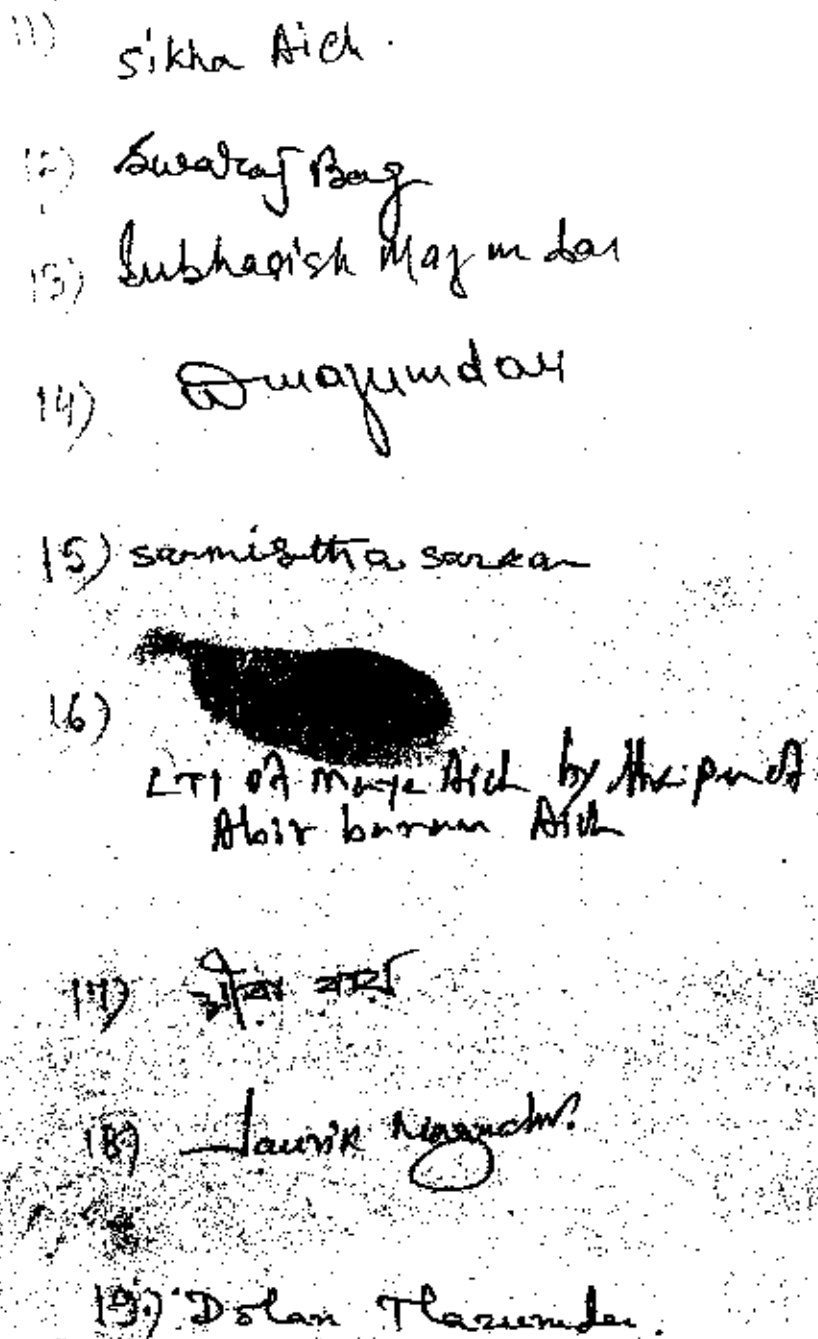 11) Sikha Aich.
12) Swaraj Bag
13) Subhasish Majumdar
14) Dmajumdar
15) sarmistha sarkar
16)
LTI of Maya Aich by the pen of
Abir barran Aich
17)
18) Majumder
19) Dolan Mazumder.